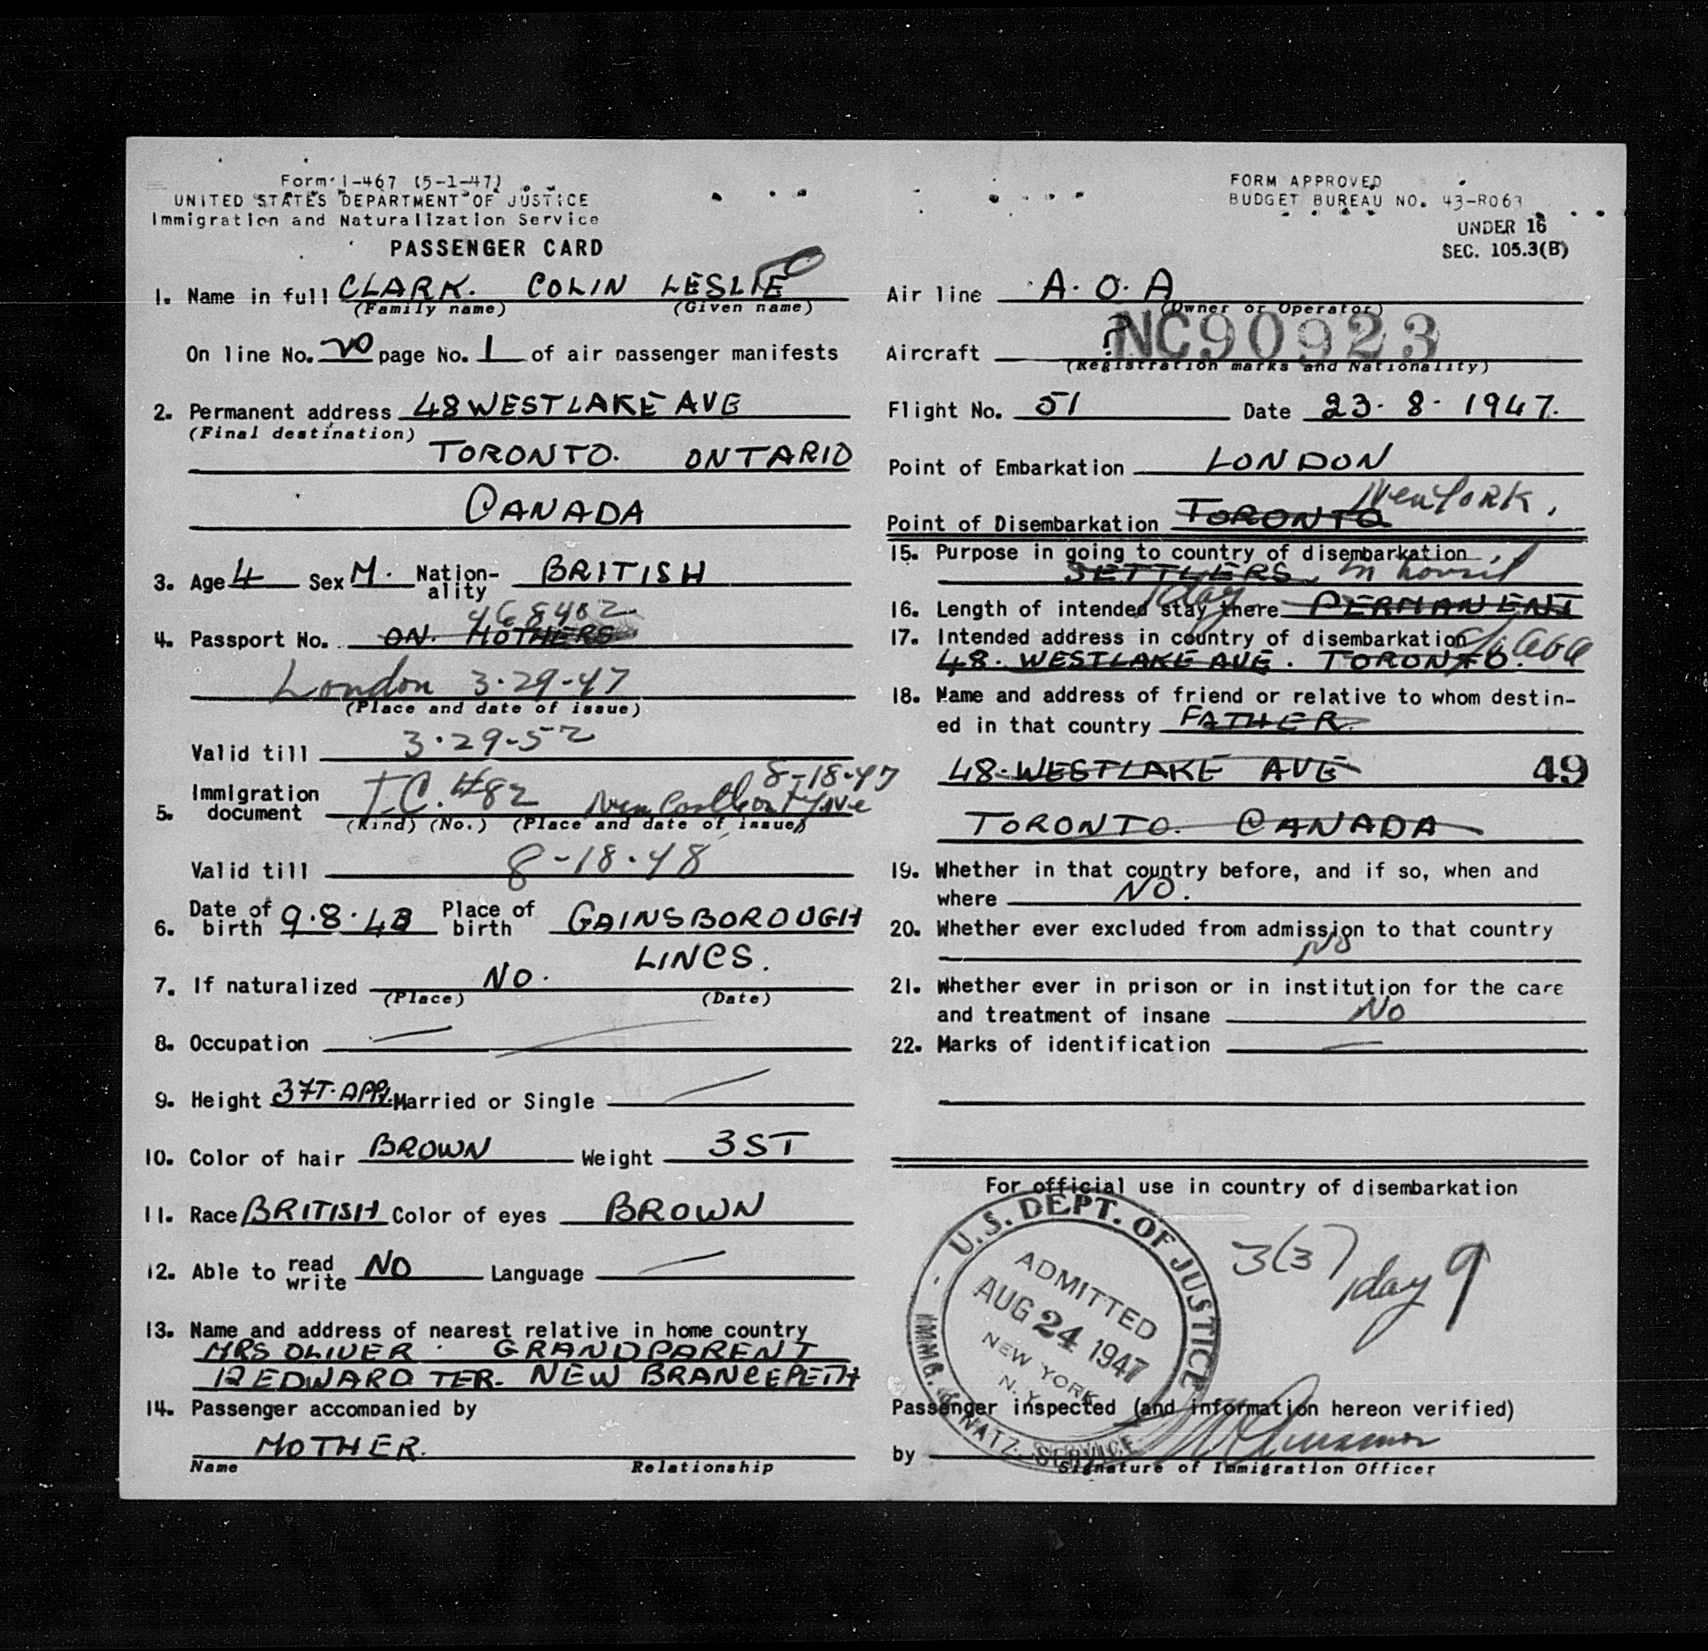 Form I-467 (5-1-47)
UNITED STATES DEPARTMENT OF JUSTICE
Immigration and Naturalization Service
PASSENGER CARD
1. Name in full CLARK. COLIN LESLIE
(Family name) (Given name)
On line No. 20 page No. 1 of air passenger manifests
2. Permanent address 48 WESTLAKE AVE
(Final destination)
TORONTO. ONTARIO
CANADA
3. Age 4 Sex M. Nation-ality BRITISH
468402
4. Passport No. ON. MOTHERS
London 3-29-47
(Place and date of issue)
Valid till 3-29-52
8-18-47
5. Immigration document I.C. #82
(Kind) (No.) (Place and date of issue)
Valid till 8-18-48
6. Date of birth 9.8.43 Place of birth GAINSBOROUGH
LINCS.
7. If naturalized NO.
(Place) (Date)
8. Occupation —
9. Height 3FT. APPX. Married or Single —
10. Color of hair BROWN Weight 3 ST
11. Race BRITISH Color of eyes BROWN
12. Able to read write NO Language —
13. Name and address of nearest relative in home country
MRS OLIVER. GRANDPARENT
12 EDWARD TER. NEW BRANCEPETH
14. Passenger accompanied by
MOTHER.
Name Relationship
FORM APPROVED
BUDGET BUREAU NO. 43-R063
UNDER 16
SEC. 105.3(B)
Air line A.O.A
(Owner or Operator)
Aircraft ? NC90923
(Registration marks and Nationality)
Flight No. 51 Date 23-8-1947.
Point of Embarkation LONDON
New York.
Point of Disembarkation TORONTO
15. Purpose in going to country of disembarkation
SETTLERS. In transit
1 day
16. Length of intended stay there PERMANENT
17. Intended address in country of disembarkation
48. WESTLAKE AVE. TORONTO.
18. Name and address of friend or relative to whom destin-
ed in that country FATHER.
48. WESTLAKE AVE 49
TORONTO. CANADA
19. Whether in that country before, and if so, when and
where NO.
20. Whether ever excluded from admission to that country
No
21. Whether ever in prison or in institution for the care
and treatment of insane No
22. Marks of identification —
For official use in country of disembarkation
3(3) 1 day 9
U.S. DEPT. OF JUSTICE
IMMG. & NATZ. SERVICE
ADMITTED
AUG 24 1947
NEW YORK
N.Y.
Passenger inspected (and information hereon verified)
by
Signature of Immigration Officer